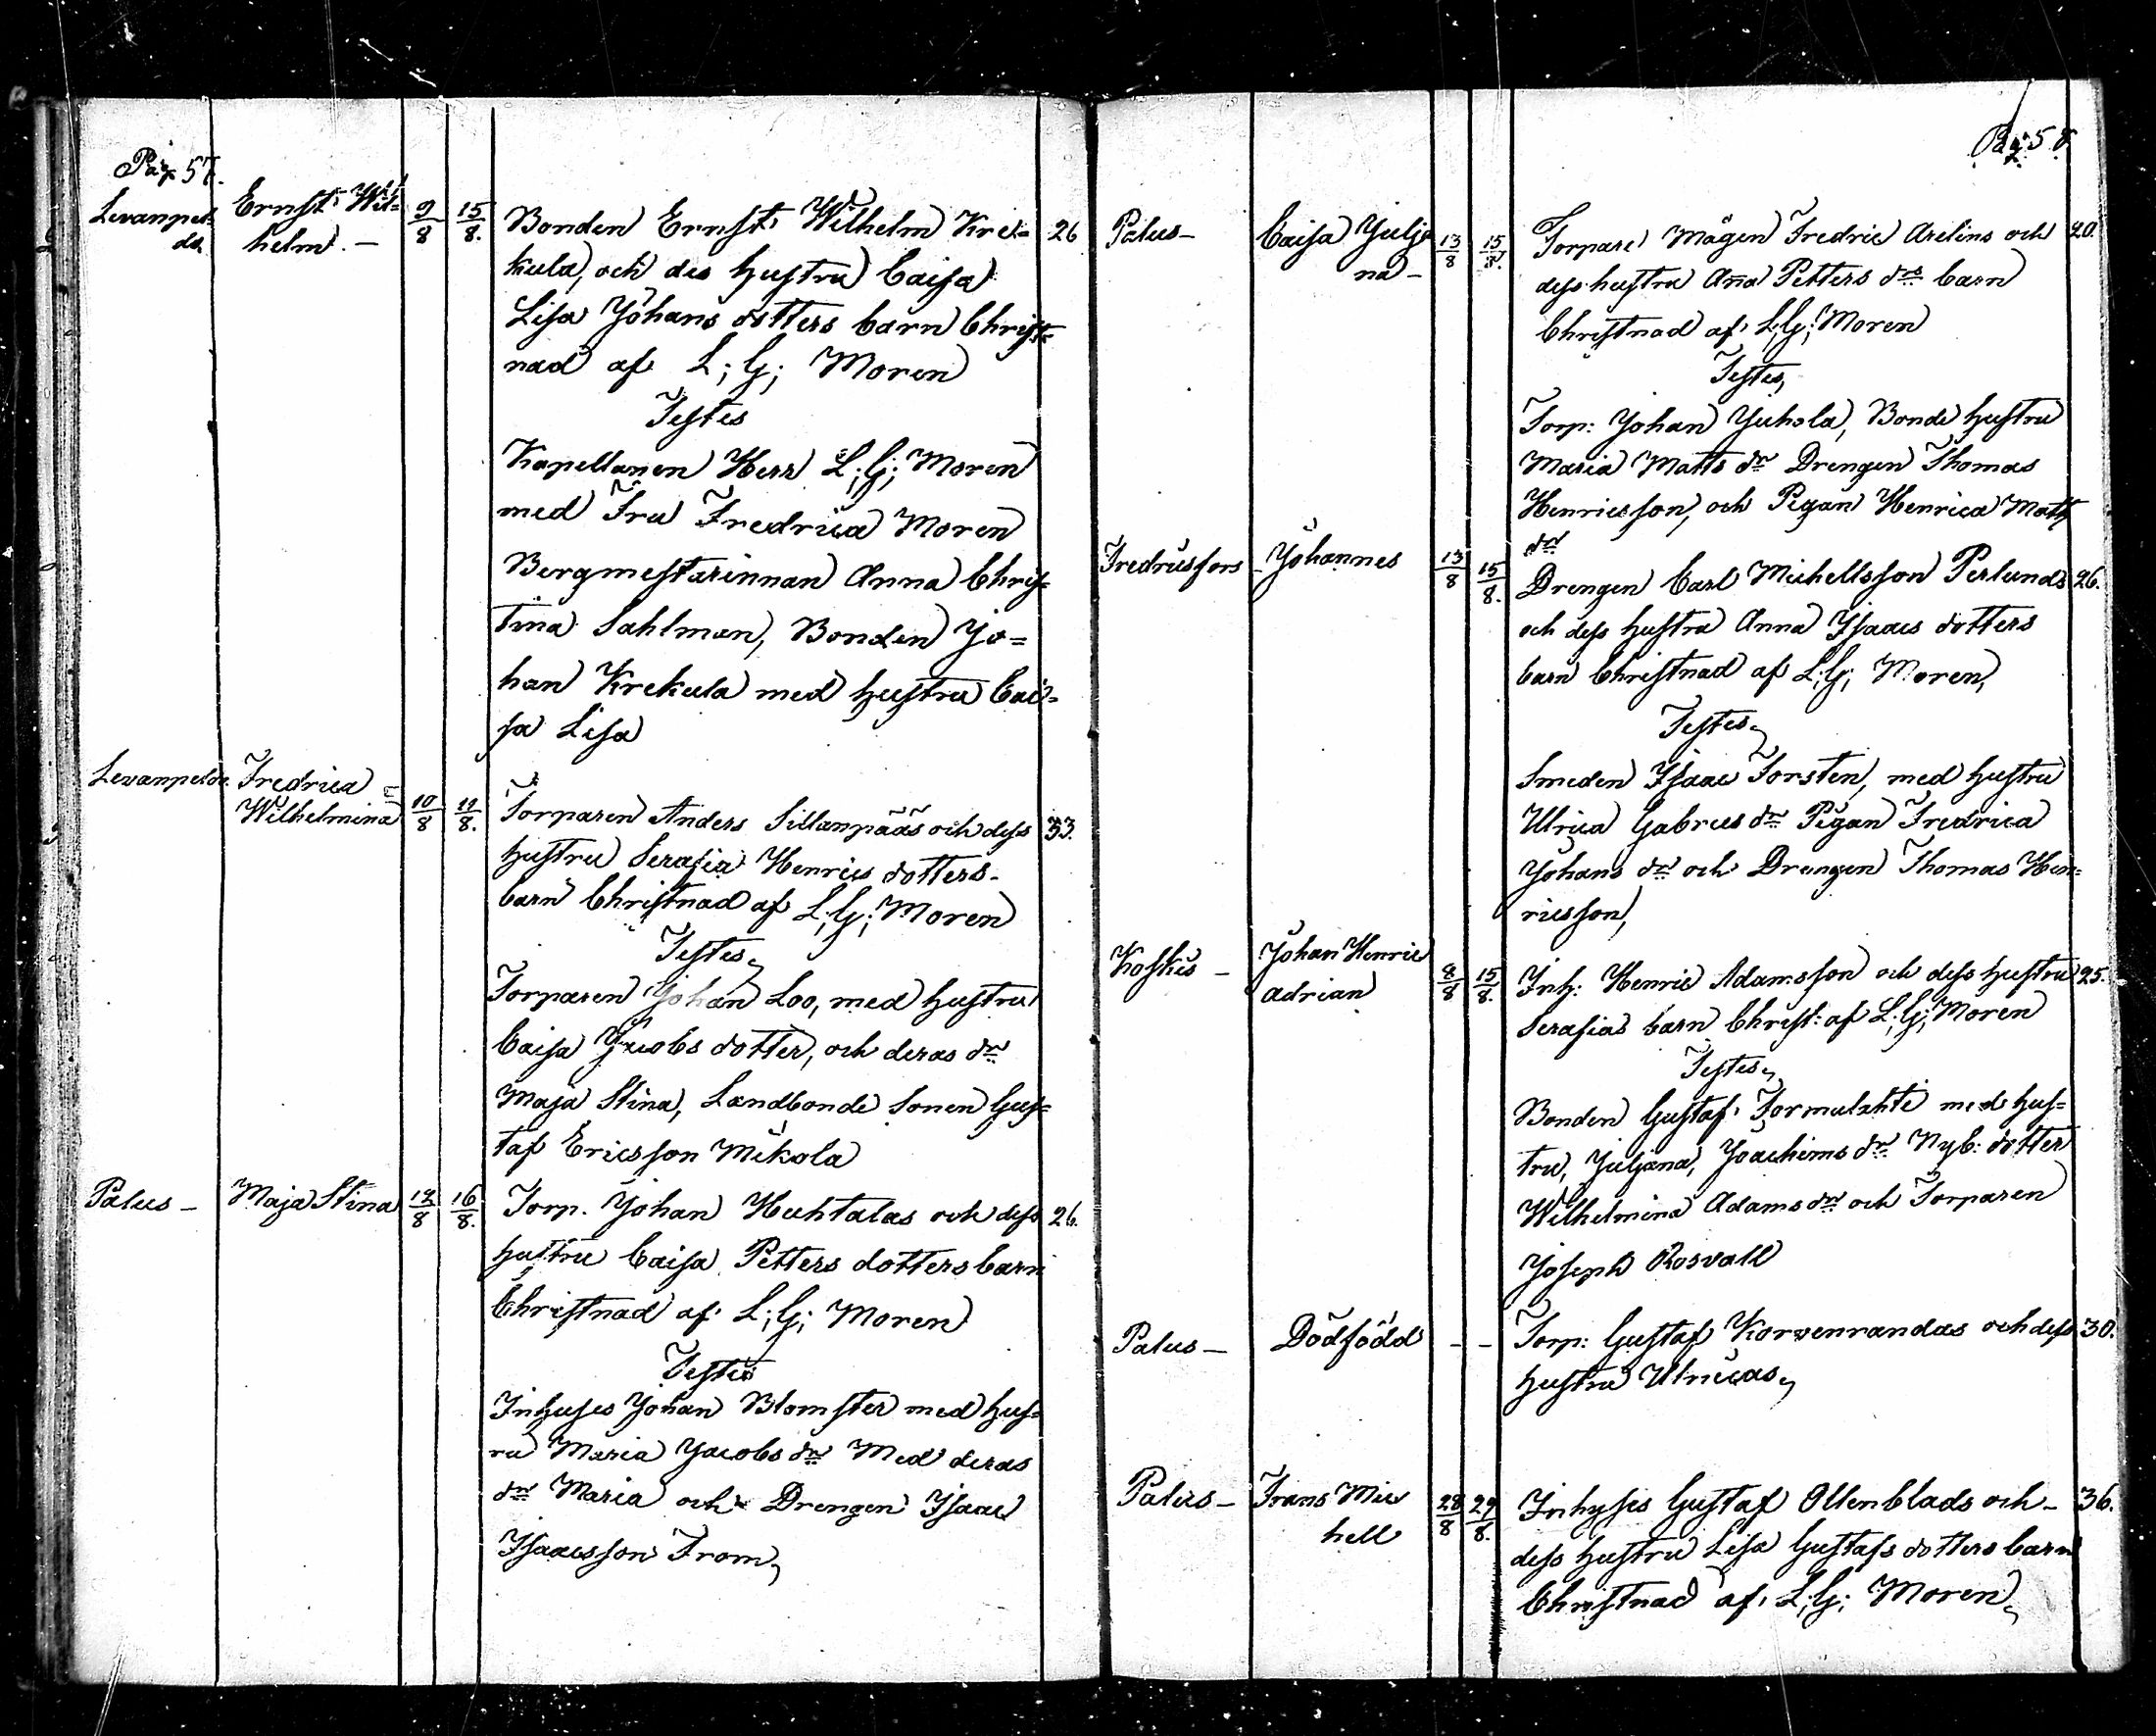 Pag 57.
Levanpel-
do.
Ernst Wil-
helm. —
9/8
15/8.
Bonden Ernst Wilhelm Kre-
kula, och des hustru Caisa
Lisa Johans dotters barn Christ-
nad af L; G; Moren
Testes
Kapellanen Herr L; G; Moren
med Fru Fredrica Moren
Bergmestarinnan Anna Chris-
tina Sahlman, Bonden Jo=
han Krekula med hustru Cai-
sa Lisa
26
Levanpeldo.
Fredrica =
Wilhelmina
10/8
11/8.
Torparen Anders Sillanpääs och dess
hustru Serafia Henrics dotters
barn Christnad af L; G; Moren
Testes,
Torparen Johan Loo, med hustru
Caisa Jacobs dotter, och deras dr
Maja Stina, Landbonde Sonen Gus-
taf Ericsson Mikola
33.
Palus —
Maja Stina
12/8
16/8.
Torp. Johan Huhtalas och dess
hustru Caisa Petters dotters barn
Christnad af L; G; Moren
Testes
Inhyses Johan Blomster med hus-
ru Maria Jacobs dr Med deras
dr Maria och Drengen Isaac
Isaacsson From,
26.
Pag: 58
Palus —
Caisa Julja
na —
13/8
15/8.
Torpare Mågen Fredric Arelins och
dess hustru Anna Petters drs barn
Christnad af L; G; Moren
Testes,
Torp: Johan Juhola, Bonde hustru
Maria Matts dr Drengen Thomas
Henricsson, och Pigan Henrica Matts
dr
20.
Fredricsfors
Johannes
13/8
15/8.
Drengen Carl Michellsson Perlunds
och dess hustru Anna Isaacs dotters
barn Christnad af L; G; Moren,
Testes,
Smeden Isaac Torsten, med hustru
Ulrica Gabriels dr Pigan Fredrica
Johans dr och Drengen Thomas Hen-
ricsson,
26.
Koskis —
Johan Henric
Adrian
8/8
15/8.
Inh: Henric Adamsson och dess hustru
Serafias barn Christ: af L; G; Moren
Testes,
Bonden Gustaf Tormulahti med hus-
tru, Juljana, Joachims dr Nyb: dotter
Wilhelmina Adams dr och Torparen
Joseph Rosvall
25.
Palus —
Dödfödd
— —
Torp: Gustaf Korvenrandas och dess
hustru Ulricas,
30.
Palus —
Frans Mic
hell
28/8
29/8.
Inhyses Gustaf Ollenblads och —
dess hustru Lisa Gustafs dotters barn
Christnad af L; G; Moren,
36.